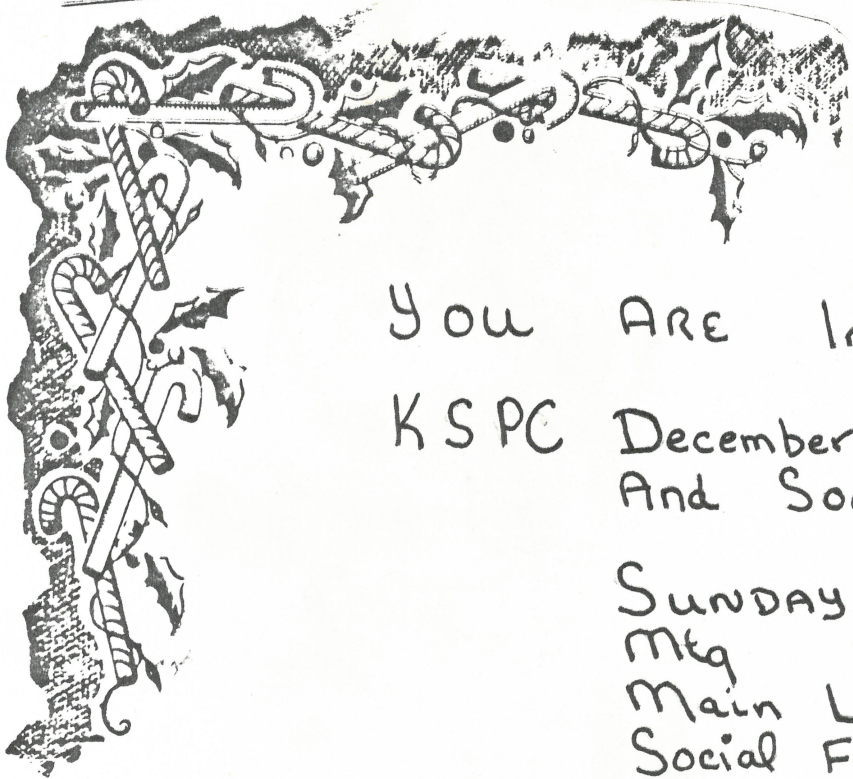 You ARE In
KSPC December
And Soc
SUNDAY
Mtg
Main L
Social F